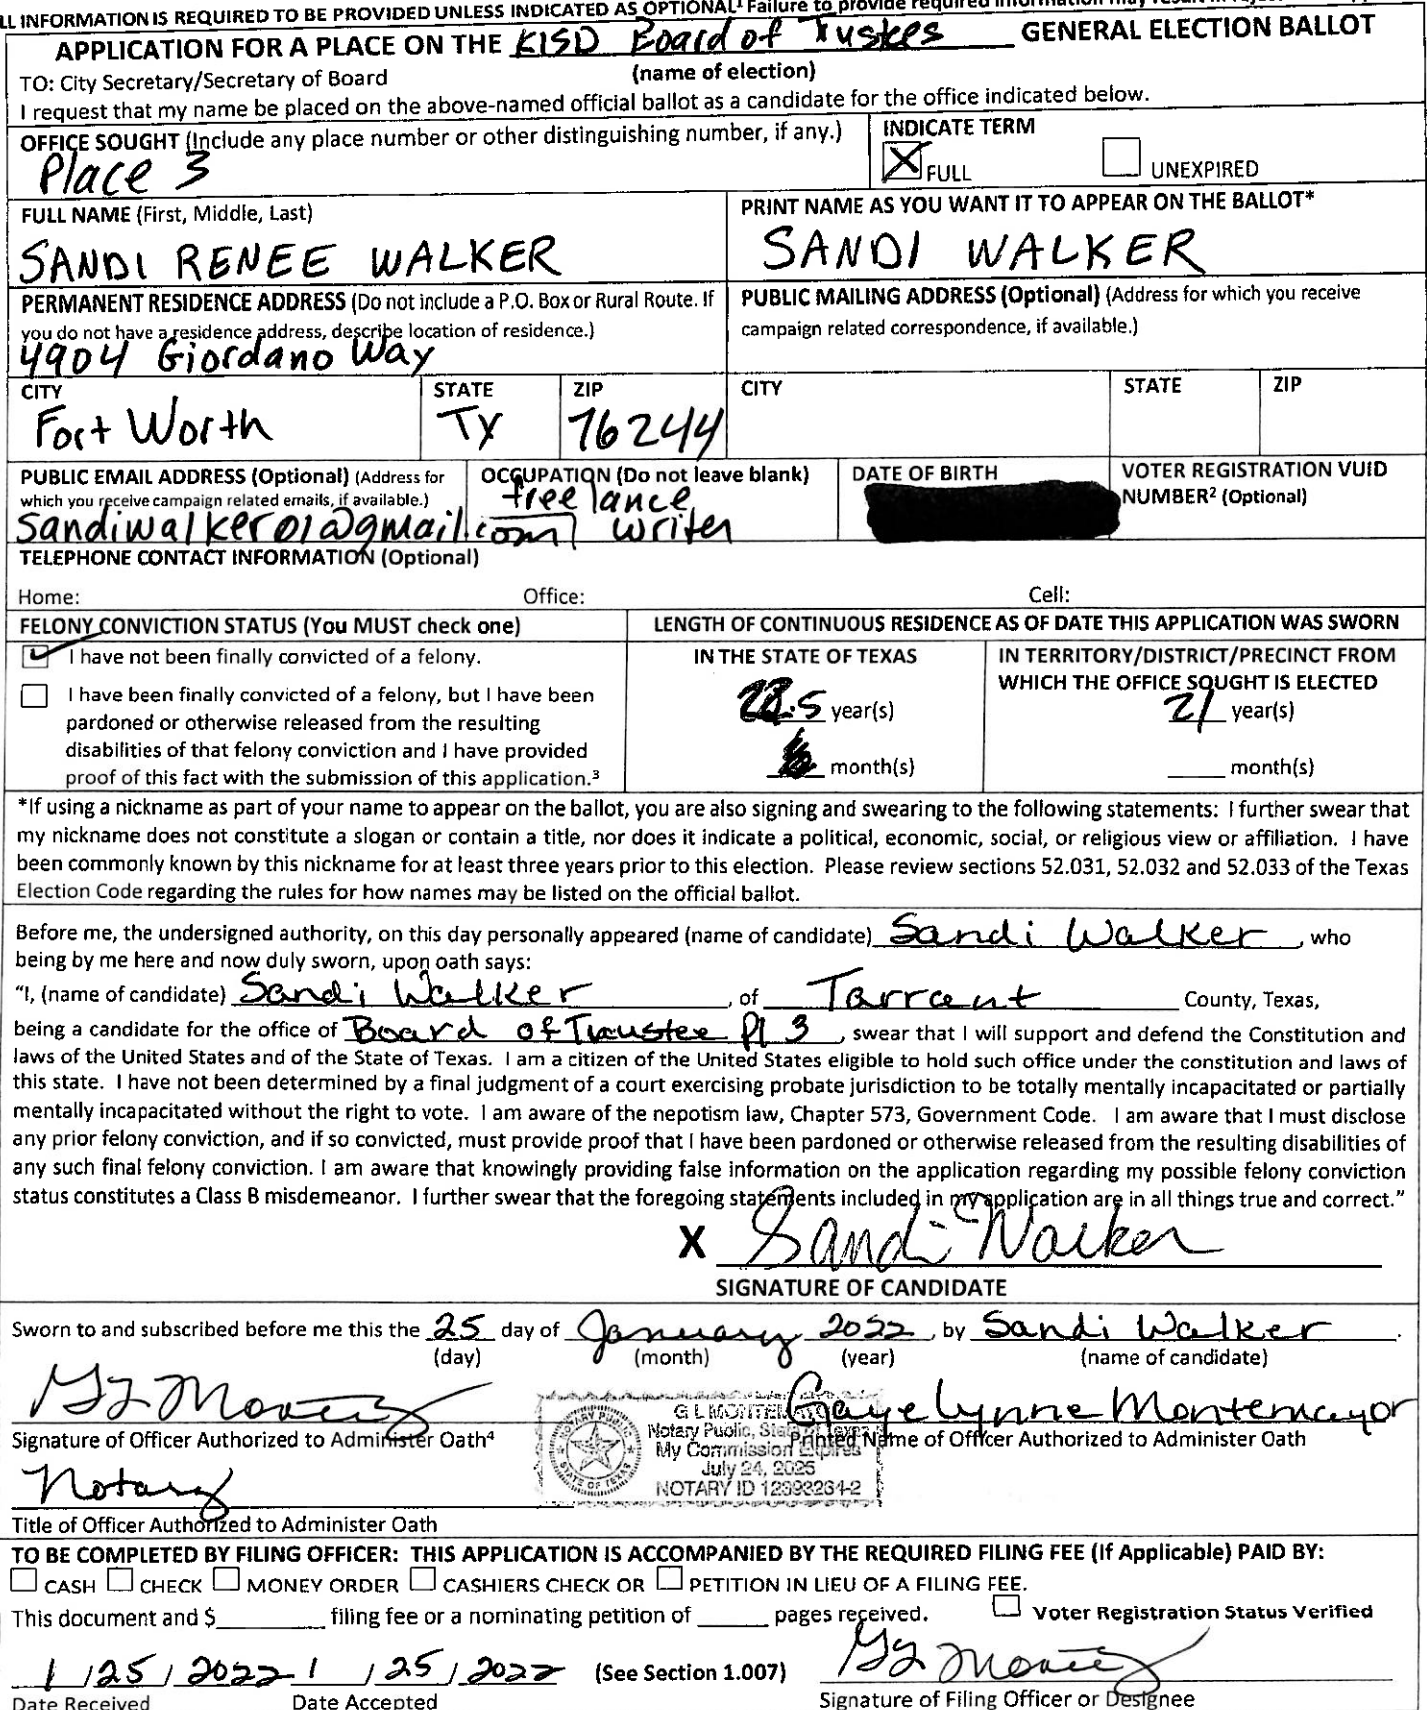 LL INFORMATION IS REQUIRED TO BE PROVIDED UNLESS INDICATED AS OPTIONAL¹ Failure to provide required information may result in
APPLICATION FOR A PLACE ON THE KISD Board of Tuskes GENERAL ELECTION BALLOT
TO: City Secretary/Secretary of Board (name of election)
I request that my name be placed on the above-named official ballot as a candidate for the office indicated below.
OFFICE SOUGHT (Include any place number or other distinguishing number, if any.)
Place 3
INDICATE TERM
X FULL UNEXPIRED
FULL NAME (First, Middle, Last)
SANDI RENEE WALKER
PRINT NAME AS YOU WANT IT TO APPEAR ON THE BALLOT*
SANDI WALKER
PERMANENT RESIDENCE ADDRESS (Do not include a P.O. Box or Rural Route. If
you do not have a residence address, describe location of residence.)
4904 Giordano Way
PUBLIC MAILING ADDRESS (Optional) (Address for which you receive
campaign related correspondence, if available.)
CITY STATE ZIP CITY STATE ZIP
Fort Worth TX 76244
PUBLIC EMAIL ADDRESS (Optional) (Address for
which you receive campaign related emails, if available.)
sandiwalker01@gmail.com
OCCUPATION (Do not leave blank)
freelance
writer
DATE OF BIRTH
VOTER REGISTRATION VUID
NUMBER² (Optional)
TELEPHONE CONTACT INFORMATION (Optional)
Home: Office: Cell:
FELONY CONVICTION STATUS (You MUST check one)
I have not been finally convicted of a felony.
I have been finally convicted of a felony, but I have been
pardoned or otherwise released from the resulting
disabilities of that felony conviction and I have provided
proof of this fact with the submission of this application.³
LENGTH OF CONTINUOUS RESIDENCE AS OF DATE THIS APPLICATION WAS SWORN
IN THE STATE OF TEXAS
.5 year(s)
month(s)
IN TERRITORY/DISTRICT/PRECINCT FROM
WHICH THE OFFICE SOUGHT IS ELECTED
21 year(s)
month(s)
*If using a nickname as part of your name to appear on the ballot, you are also signing and swearing to the following statements: I further swear that
my nickname does not constitute a slogan or contain a title, nor does it indicate a political, economic, social, or religious view or affiliation. I have
been commonly known by this nickname for at least three years prior to this election. Please review sections 52.031, 52.032 and 52.033 of the Texas
Election Code regarding the rules for how names may be listed on the official ballot.
Before me, the undersigned authority, on this day personally appeared (name of candidate) Sandi Walker, who
being by me here and now duly sworn, upon oath says:
"I, (name of candidate) Sandi Walker, of Tarrant County, Texas,
being a candidate for the office of Board of Trustee Pl 3, swear that I will support and defend the Constitution and
laws of the United States and of the State of Texas. I am a citizen of the United States eligible to hold such office under the constitution and laws of
this state. I have not been determined by a final judgment of a court exercising probate jurisdiction to be totally mentally incapacitated or partially
mentally incapacitated without the right to vote. I am aware of the nepotism law, Chapter 573, Government Code. I am aware that I must disclose
any prior felony conviction, and if so convicted, must provide proof that I have been pardoned or otherwise released from the resulting disabilities of
any such final felony conviction. I am aware that knowingly providing false information on the application regarding my possible felony conviction
status constitutes a Class B misdemeanor. I further swear that the foregoing statements included in my application are in all things true and correct."
X Sandi Walker
SIGNATURE OF CANDIDATE
Sworn to and subscribed before me this the 25 day of January 2022, by Sandi Walker.
(day) (month) (year) (name of candidate)
Gayelynne Montemayor
Signature of Officer Authorized to Administer Oath⁴
Printed Name of Officer Authorized to Administer Oath
NOTARY PUBLIC
STATE OF TEXAS
G L MONTEMAYOR
Notary Public, State of Texas
My Commission Expires
July 24, 2025
NOTARY ID 12393264-2
Notary
Title of Officer Authorized to Administer Oath
TO BE COMPLETED BY FILING OFFICER: THIS APPLICATION IS ACCOMPANIED BY THE REQUIRED FILING FEE (If Applicable) PAID BY:
CASH CHECK MONEY ORDER CASHIERS CHECK OR PETITION IN LIEU OF A FILING FEE.
This document and $ filing fee or a nominating petition of pages received. Voter Registration Status Verified
1/25/2022 1/25/2022 (See Section 1.007)
Date Received Date Accepted Signature of Filing Officer or Designee